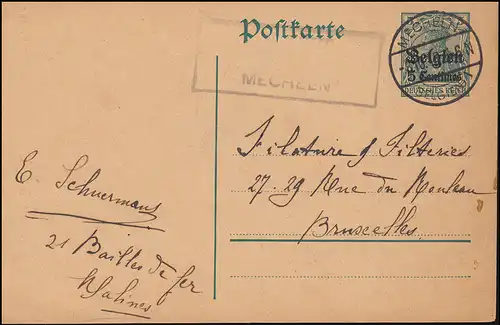 Postkarte
MECHELN
Belgien
5 Centimes
DEUTSCHES REICH
MECHELN
Filature & Filteries
27-29 Rue du Rouleau
Bruxelles
E. Schuermans
21 Bailles de fer
Malines